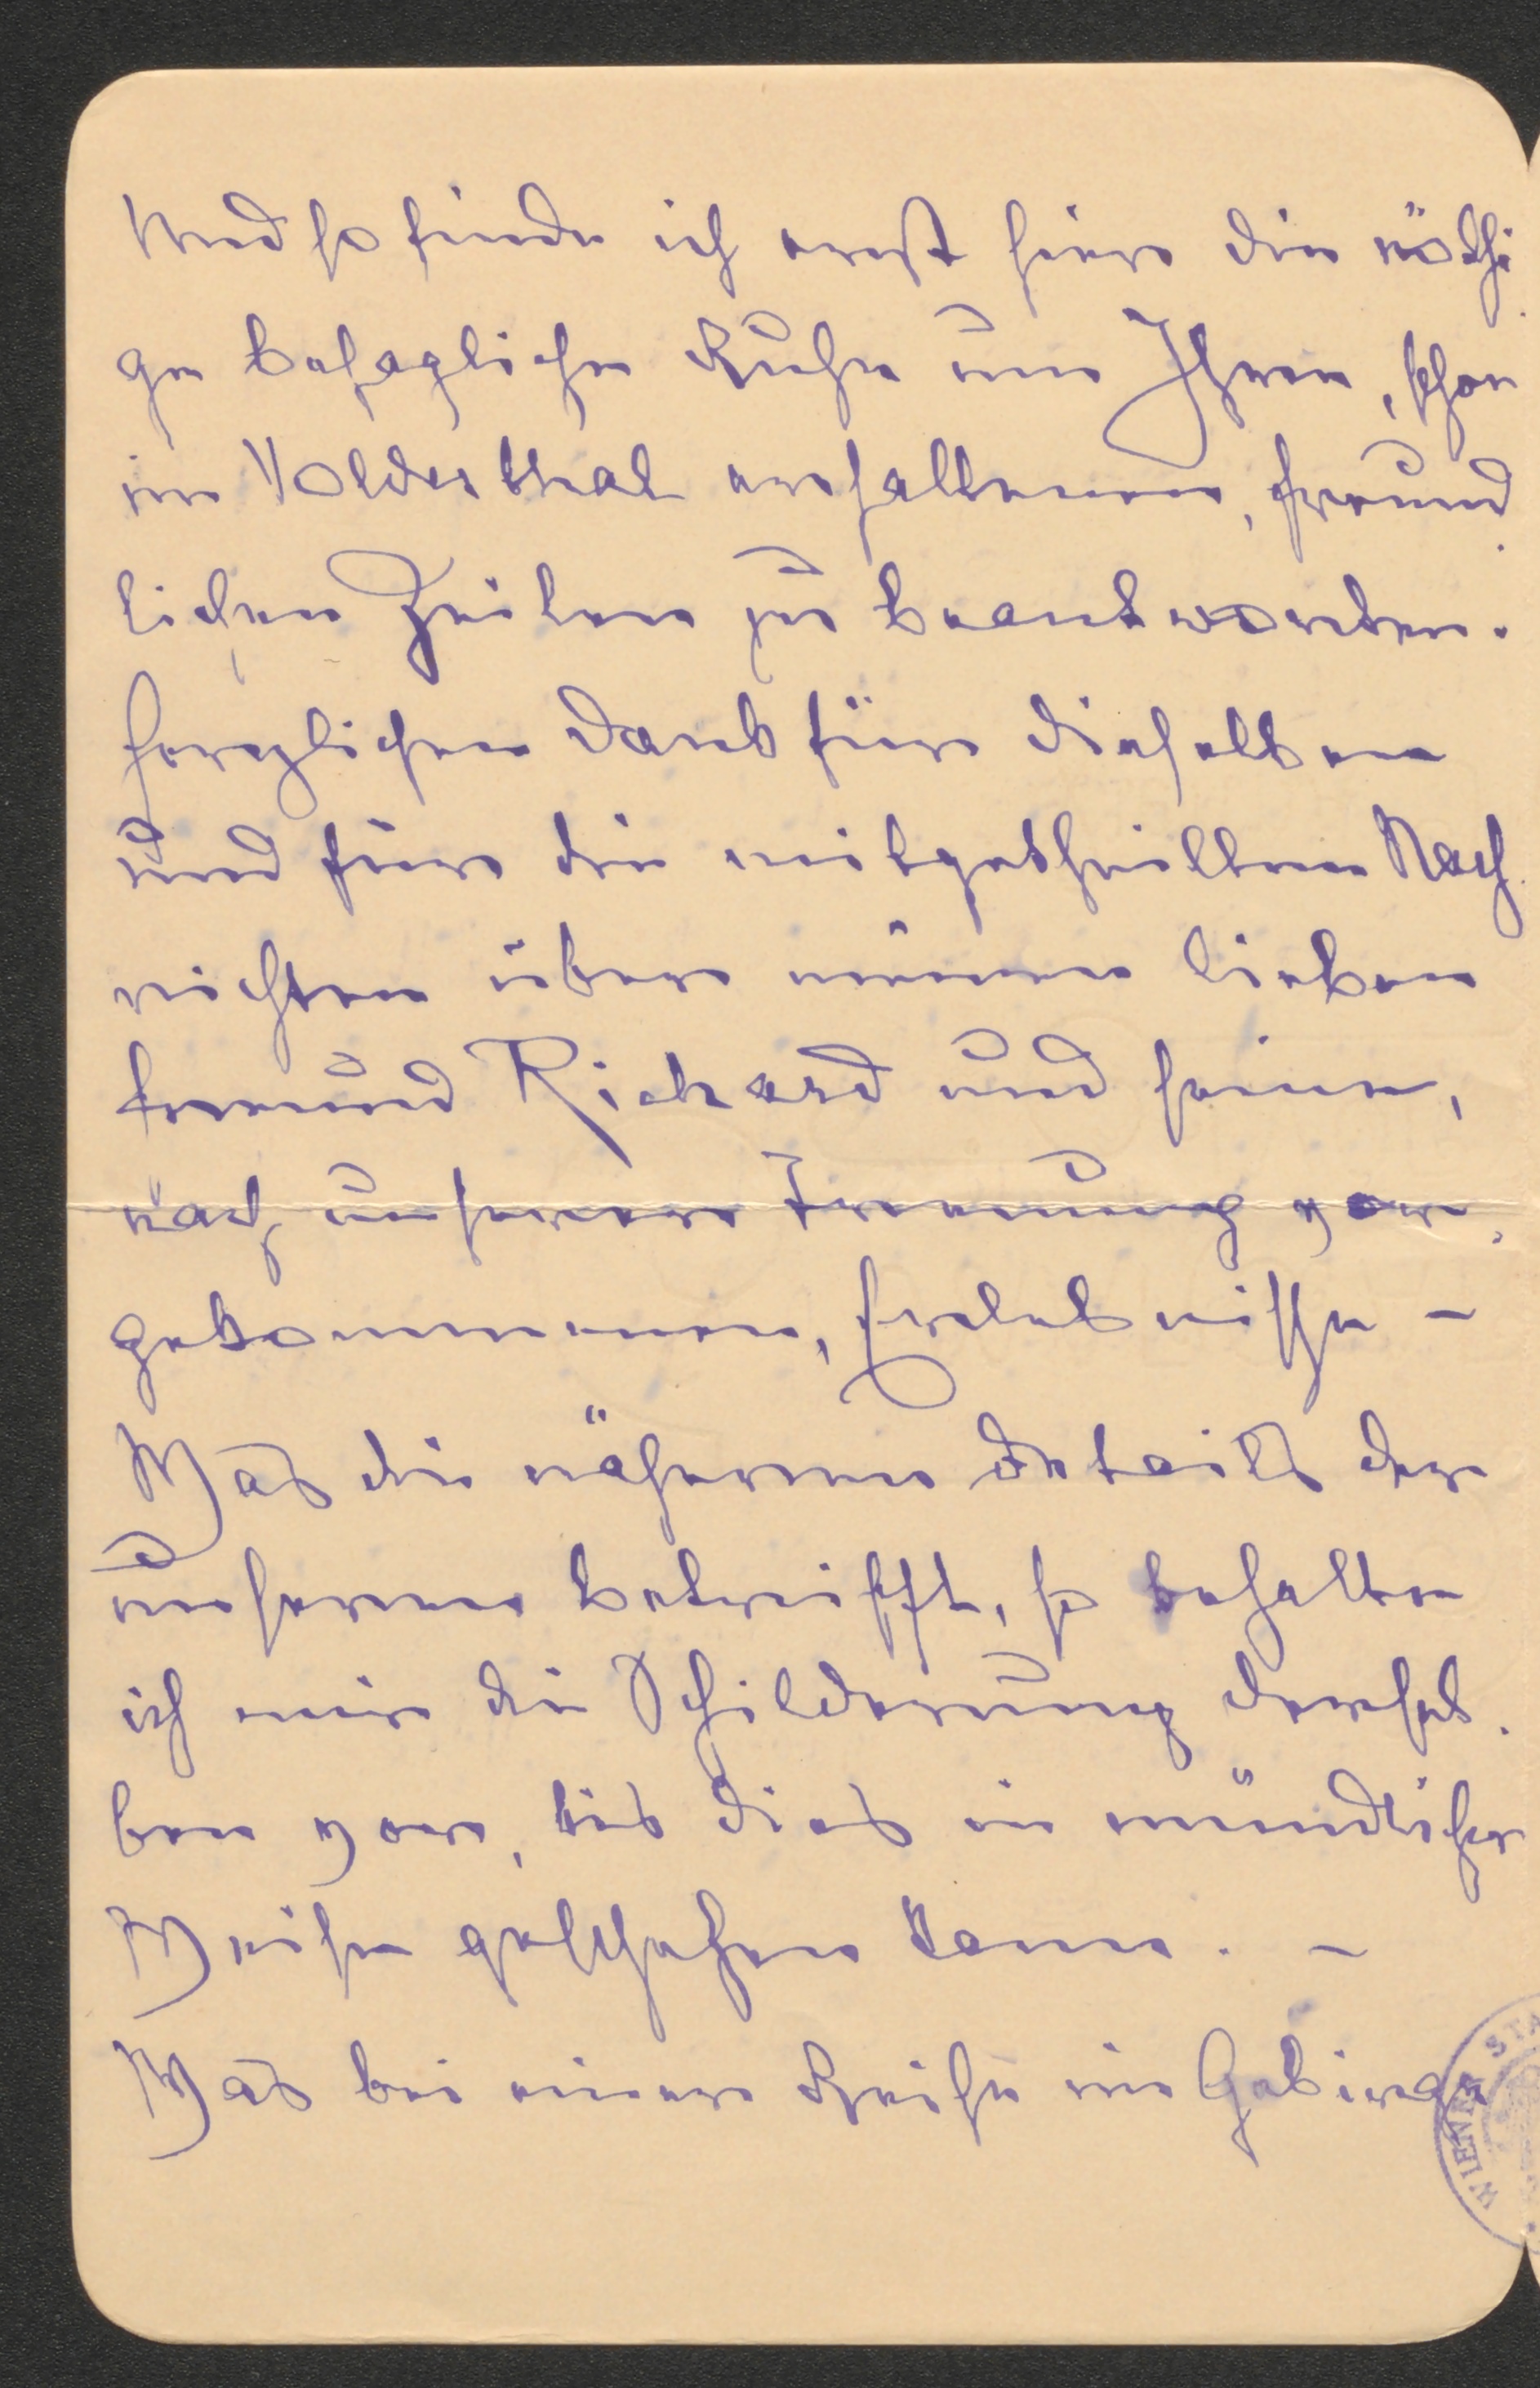 Und so finde ich erst hier die nöthi
ge behagliche Ruhe um Ihren, schon
im Volderthal erhaltenen, freund
lichen Zeilen zu beantworten.
Herzlichen Dank für dieselben
und für die mitgetheilten Nach
richten über meinen lieben
Freund Richard und seine,
nach unserer Trennung vor.
gekommenen, Erlebnisse –
Was die näheren Details der
unseren betrifft, so behalte
ich mir die Schilderung dersel.
ben vor, bis dies in mündlicher
Weise geschehen kann. –
Was bei einer Reise im Gebirge
WIENER STA